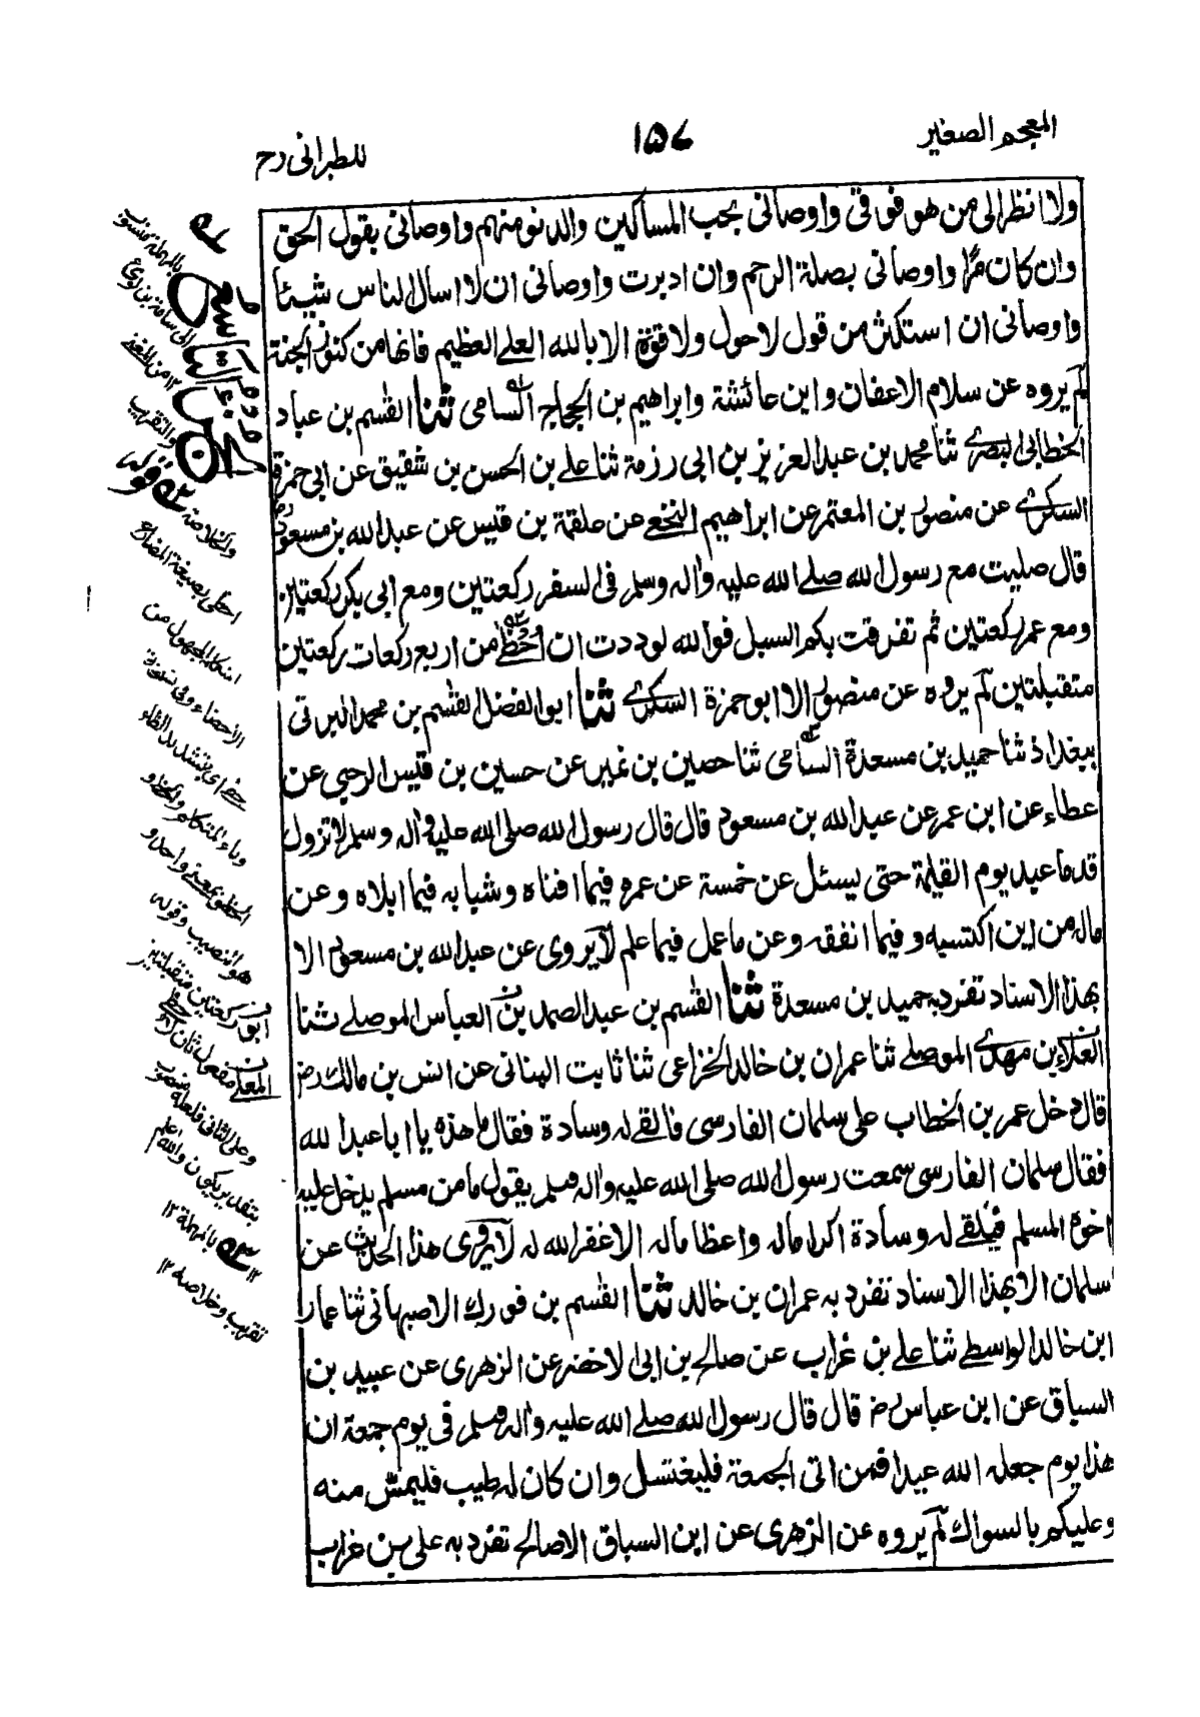 المعجم الصغير
١٥٧
للطبرانی رح
ولا انظر الی من هو فوقی واوصانی بحب المساکین والدنو منهم واوصانی بقول الحق
وان کان مرًا واوصانی بصلة الرحم وان ادبرت واوصانی ان لا اسال الناس شیئا
واوصانی ان استکثر من قول لا حول ولا قوة الا بالله العلے العظیم فانها من کنوز الجنة
لم یروه عن سلام الا عفان وابن عائشة وابراهیم بن الحجاج السامی ثنا القسم بن عباد
الخطابی البصرے ثنا محمد بن عبد العزیز بن ابی رزمة ثنا علے بن الحسن بن شقیق عن ابی حمزة
السکرے عن منصور بن المعتمر عن ابراهیم النخعے عن علقمة بن قیس عن عبد الله بن مسعود رض
قال صلیت مع رسول الله صلے الله علیه واله وسلم فی السفر رکعتین ومع ابی بکر رکعتین
ومع عمر رکعتین ثم تفرقت بکم السبل فوالله لوددت ان احظے من اربع رکعات رکعتین
متقبلتین لم یروه عن منصور الا ابو حمزة السکرے ثنا ابو الفضل القسم بن محمد البرتی
ببغداد ثنا حمید بن مسعدة السامی ثنا حصین بن نمیر عن حسین بن قیس الرحبی عن
عطاء عن ابن عمر عن عبد الله بن مسعود قال قال رسول الله صلی الله علیه واله وسلم لا تزول
قدما عبد یوم القیمة حتی یسئل عن خمسة عن عمره فیما افناه وشبابه فیما ابلاه وعن
ماله من این اکتسبه وفیما انفقه وعن ما عمل فیما علم لا یروی عن عبد الله بن مسعود الا
بهذا الاسناد تفرد به حمید بن مسعدة ثنا القسم بن عبد الصمد بن العباس الموصلے ثنا
العلاء بن مهدے الموصلے ثنا عمران بن خالد الخزاعی ثنا ثابت البنانی عن انس بن مالک رض
قال دخل عمر بن الخطاب علی سلمان الفارسی فالقے له وسادة فقال ما هذه یا ابا عبد الله
فقال سلمان الفارسی سمعت رسول الله صلی الله علیه واله وسلم یقول ما من مسلم یدخل علیه
اخوه المسلم فیلقے له وسادة اکراما له واعظاما له الا غفر الله له لا یروی هذا الحدیث عن
سلمان الا بهذا الاسناد تفرد به عمران بن خالد ثنا القسم بن فورك الاصبهانی ثنا عمار
ابن خالد الواسطے ثنا علے بن غراب عن صالح بن ابی الاخضر عن الزهری عن عبید بن
السباق عن ابن عباس رض قال قال رسول الله صلے الله علیه واله وسلم فی یوم جمعة ان
هذا یوم جعله الله عیدا فمن اتی الجمعة فلیغتسل وان کان له طیب فلیمسّ منه
وعلیکم بالسواك لم یروه عن الزهری عن ابن السباق الا صالح تفرد به علی بن غراب
بالمهملة منسوب
الی سامة بن لوی
١٢ من المغنے
والتقریب
والخلاصة قوله
احظی بصیغة المضارع
المتکلم المجهول من
الاحظاء وفی نسخة
بتشدید الظاء
وباء المتکلم والحظ و
الحظوة بمعنے واحد و
هو النصیب وقوله
رکعتین متقبلتین
مفعول ثان
وعلی الثانی
بتقدیر یکون والله اعلم
١٢ بالمهملة ١٢
تقریب وخلاصه ١٢